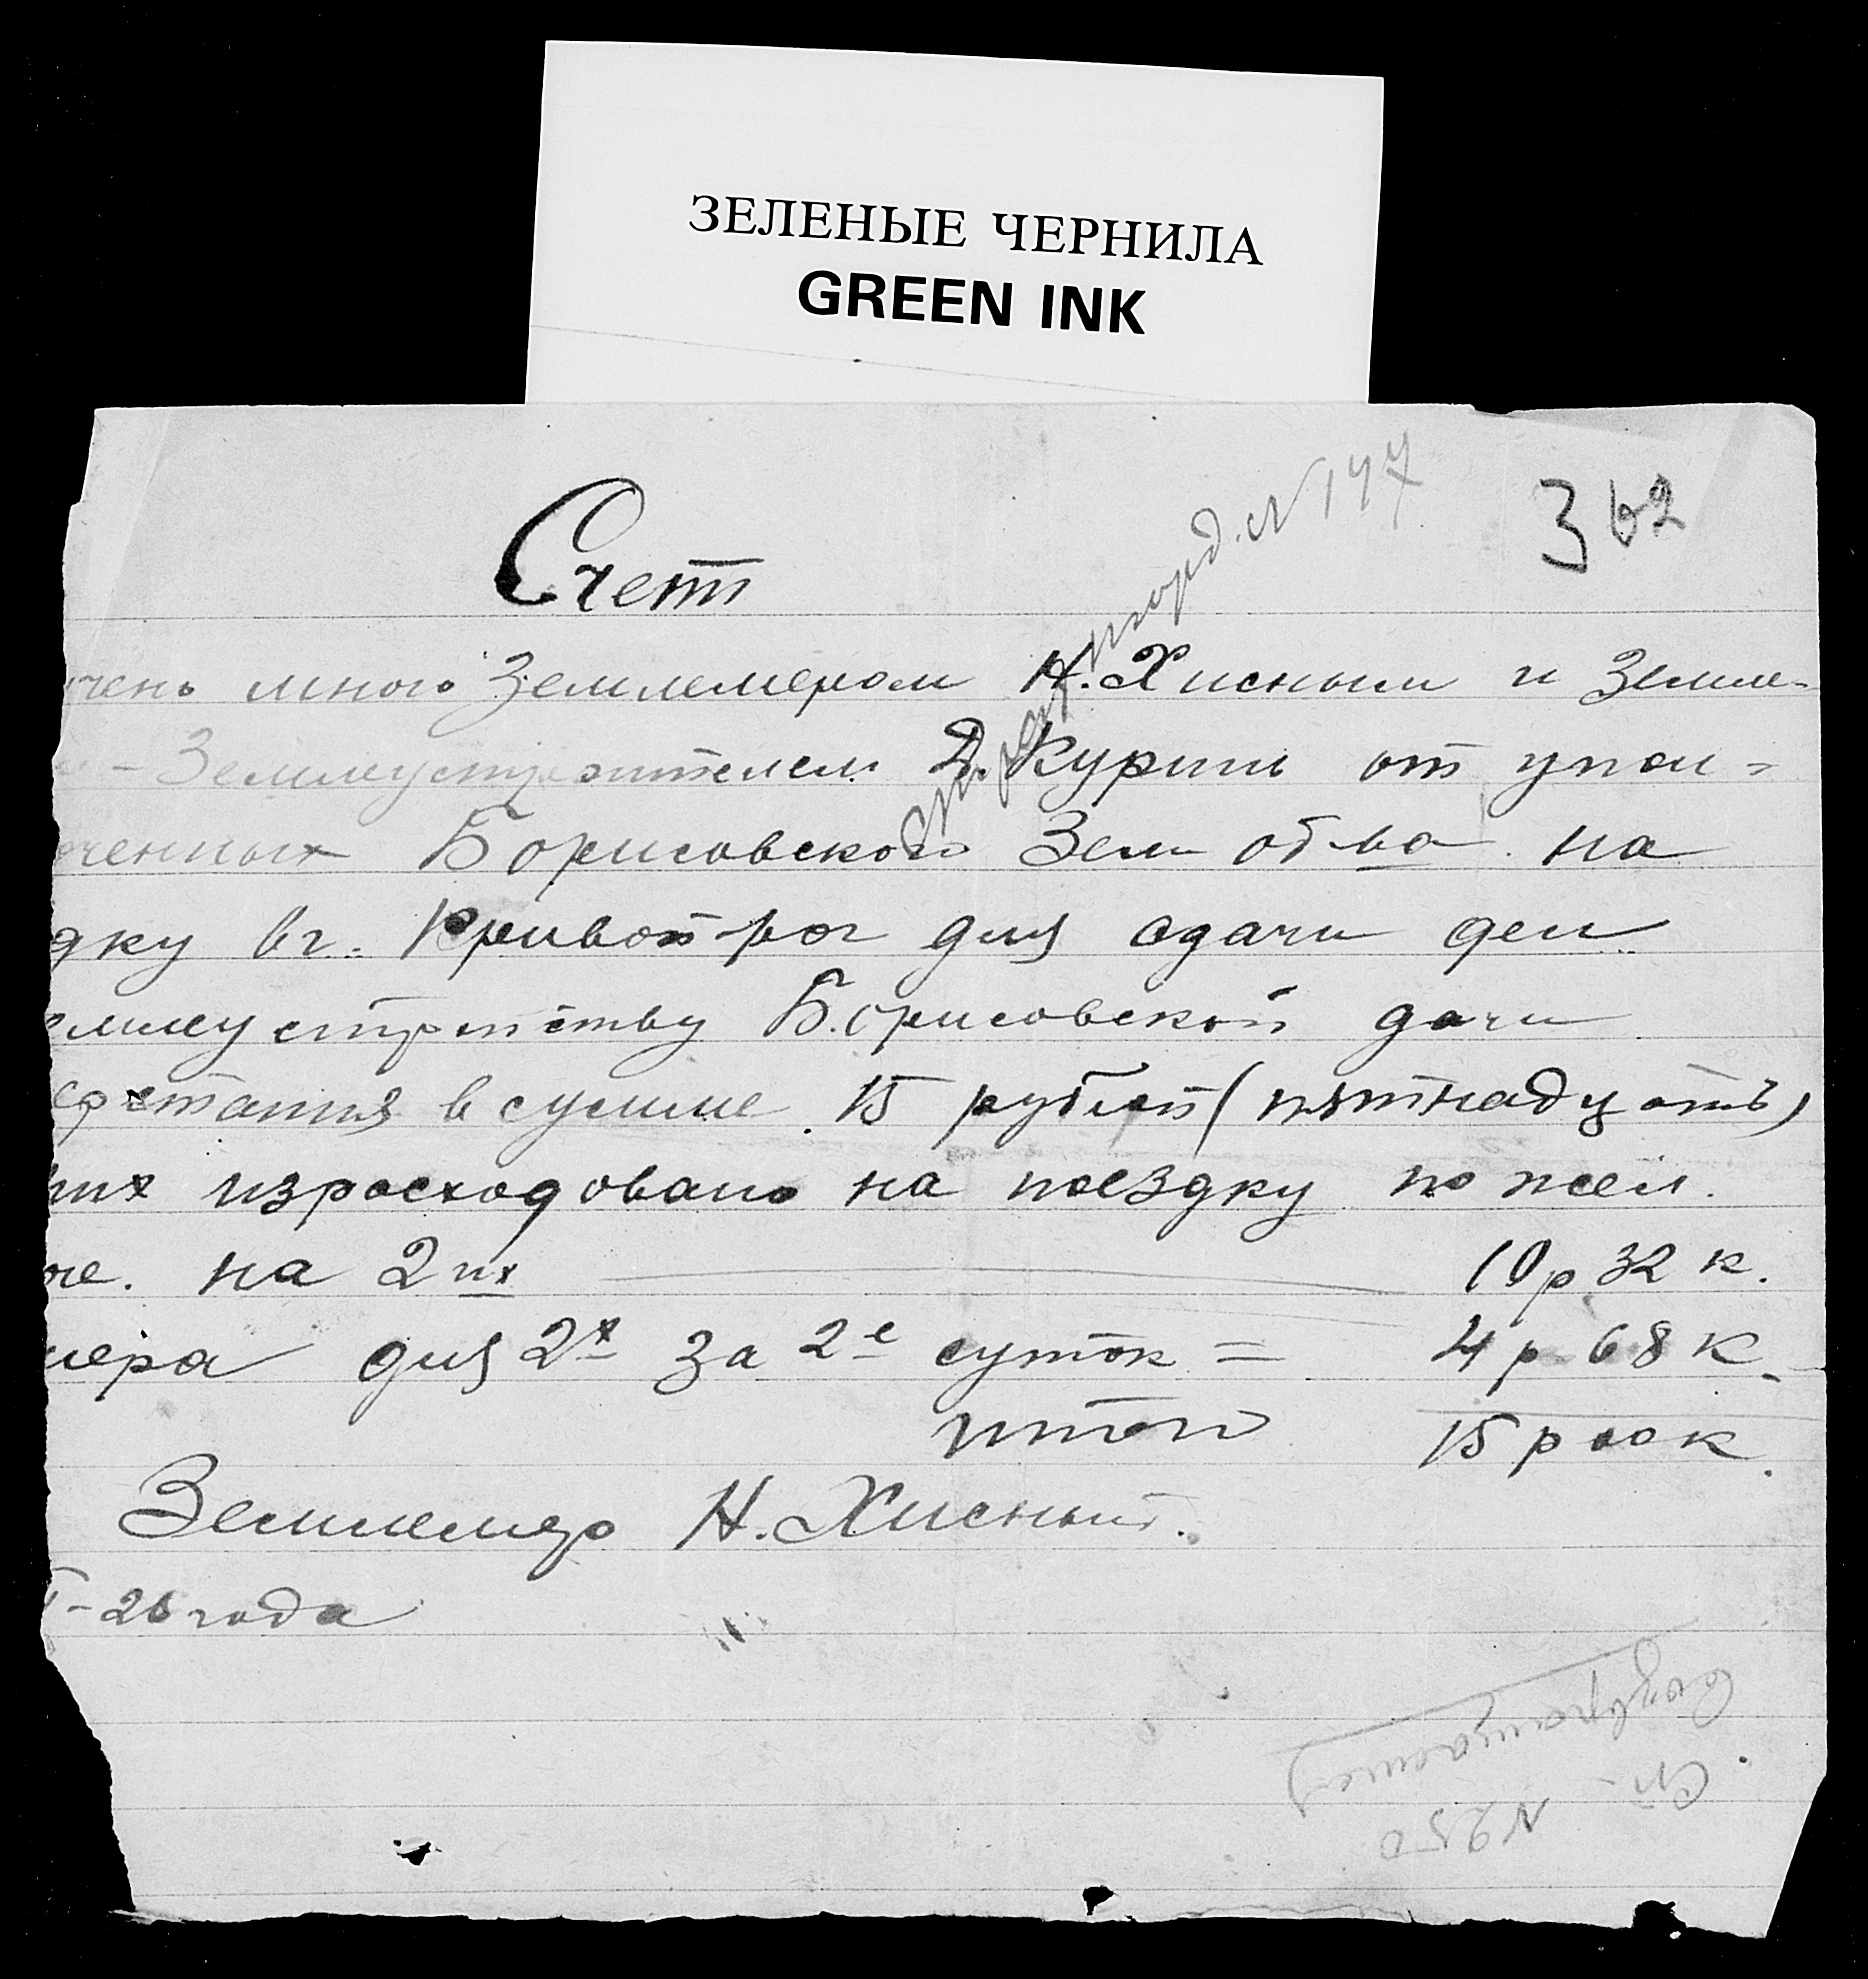 ЗЕЛЕНЫЕ ЧЕРНИЛА
GREEN INK
N 147
362
Счет
чень мною Землемером Н. Хисным и Земле-
- Землеустроителем Д. Курить от упол-
оченных Борисовского Зем об-ва на
дку в г. Кривой-рог для сдачи дел
емлеустройству Борисовской дачи
в сумме 15 рублей (пятнадцать)
них израсходовано на поездку по жел.
оге. на 2их 10 р 32 к.
мера для 2х за 2е суток = 4 р 68 к.
итого 15 р 00 к.
Землемер Н. Хисный.
- 26 года
Возвращается
N 250